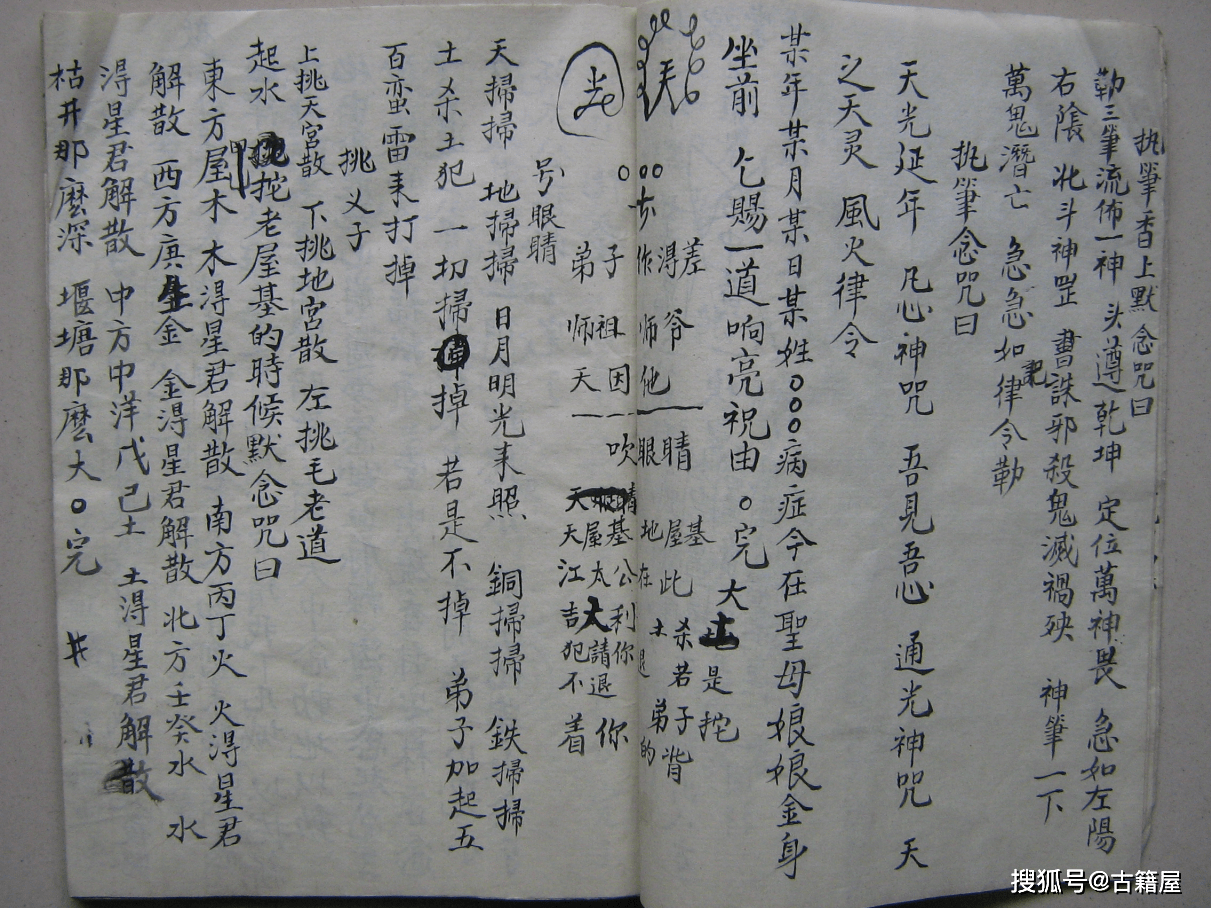 执筆香上默念咒曰
勅三筆流佈一神 头遵乾坤 定位萬神畏 急如左陽
右陰 北斗神罡 書誅邪殺鬼滅禍殃 神筆一下
萬鬼潛亡 急急如律令勒
执筆念咒曰
天光延年 凡心神咒 吾見吾心 通光神咒 天
之天灵 風火律令
某年某月某日某姓〇〇〇病症今在聖母娘娘金身
坐前 乞賜一道响亮祝由 〇完
号眼睛
天掃掃 地掃掃 日月明光来照 銅掃掃 鉄掃掃
土杀土犯 一切掃掉 若是不掉 弟子加起五
百蛮雷来打掉
挑义子
上挑天宫散 下挑地宫散 左挑毛老道
起水 挖老屋基的時候默念咒曰
東方屋木 木得星君解散 南方丙丁火 火得星君
解散 西方庚金 金得星君解散 北方壬癸水 水
得星君解散 中方中洋戊己土 土得星君解散
枯井那麽深 堰塘那麽大 〇完 井
搜狐号@古籍屋